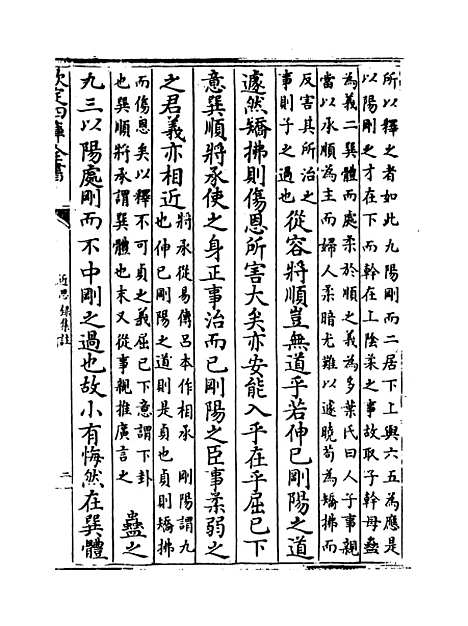 所以釋之者如此九陽剛而二居下上與六五為應是
以陽剛之才在下而幹在上陰柔之事故取子幹母蠱
為義二巽體而處柔於順之義為多葉氏曰人子事親
當以承順為主而婦人柔暗尤難以遽曉茍為矯拂而
反害其所治之
事則子之過也
從容將順豈無道乎若伸已剛陽之道
遽然矯拂則傷恩所害大矣亦安能入乎在乎屈已下
意巽順將承使之身正事治而已剛陽之臣事柔弱之
之君義亦相近
將承從易傳呂本作相承 剛陽謂九
也伸已剛陽之道則是貞也貞則矯拂
而傷恩矣以釋不可貞之義屈已下意謂下卦
也巽順將承謂巽體也末又從事親推廣言之
蠱之
九三以陽處剛而不中剛之過也故小有悔然在巽體
欽定四庫全書
近思錄集註
二